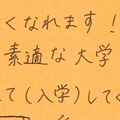 くなれます！
素適な大学
て(入学)してく